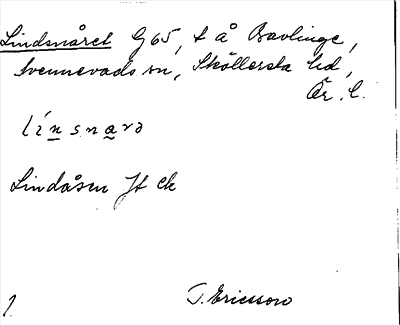 Lindsnåret G65, t å Bavlinge,
Svennevads sn, Sköllersta hd,
Ör. l.
lí n s n a r ə
Lindåsen Jt Ek
J. Ericsson
1.